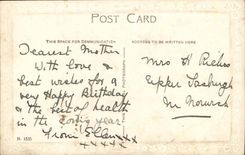 POST CARD
THIS SPACE FOR COMMUNICATION
ADDRESS TO BE WRITTEN HERE
Dearest Mother
With love &
best wishes for a
very Happy Birthday
& the best of health
in the year
from Ellen
xxxxx
Mrs H
Upper Tasburgh
Nr Norwich